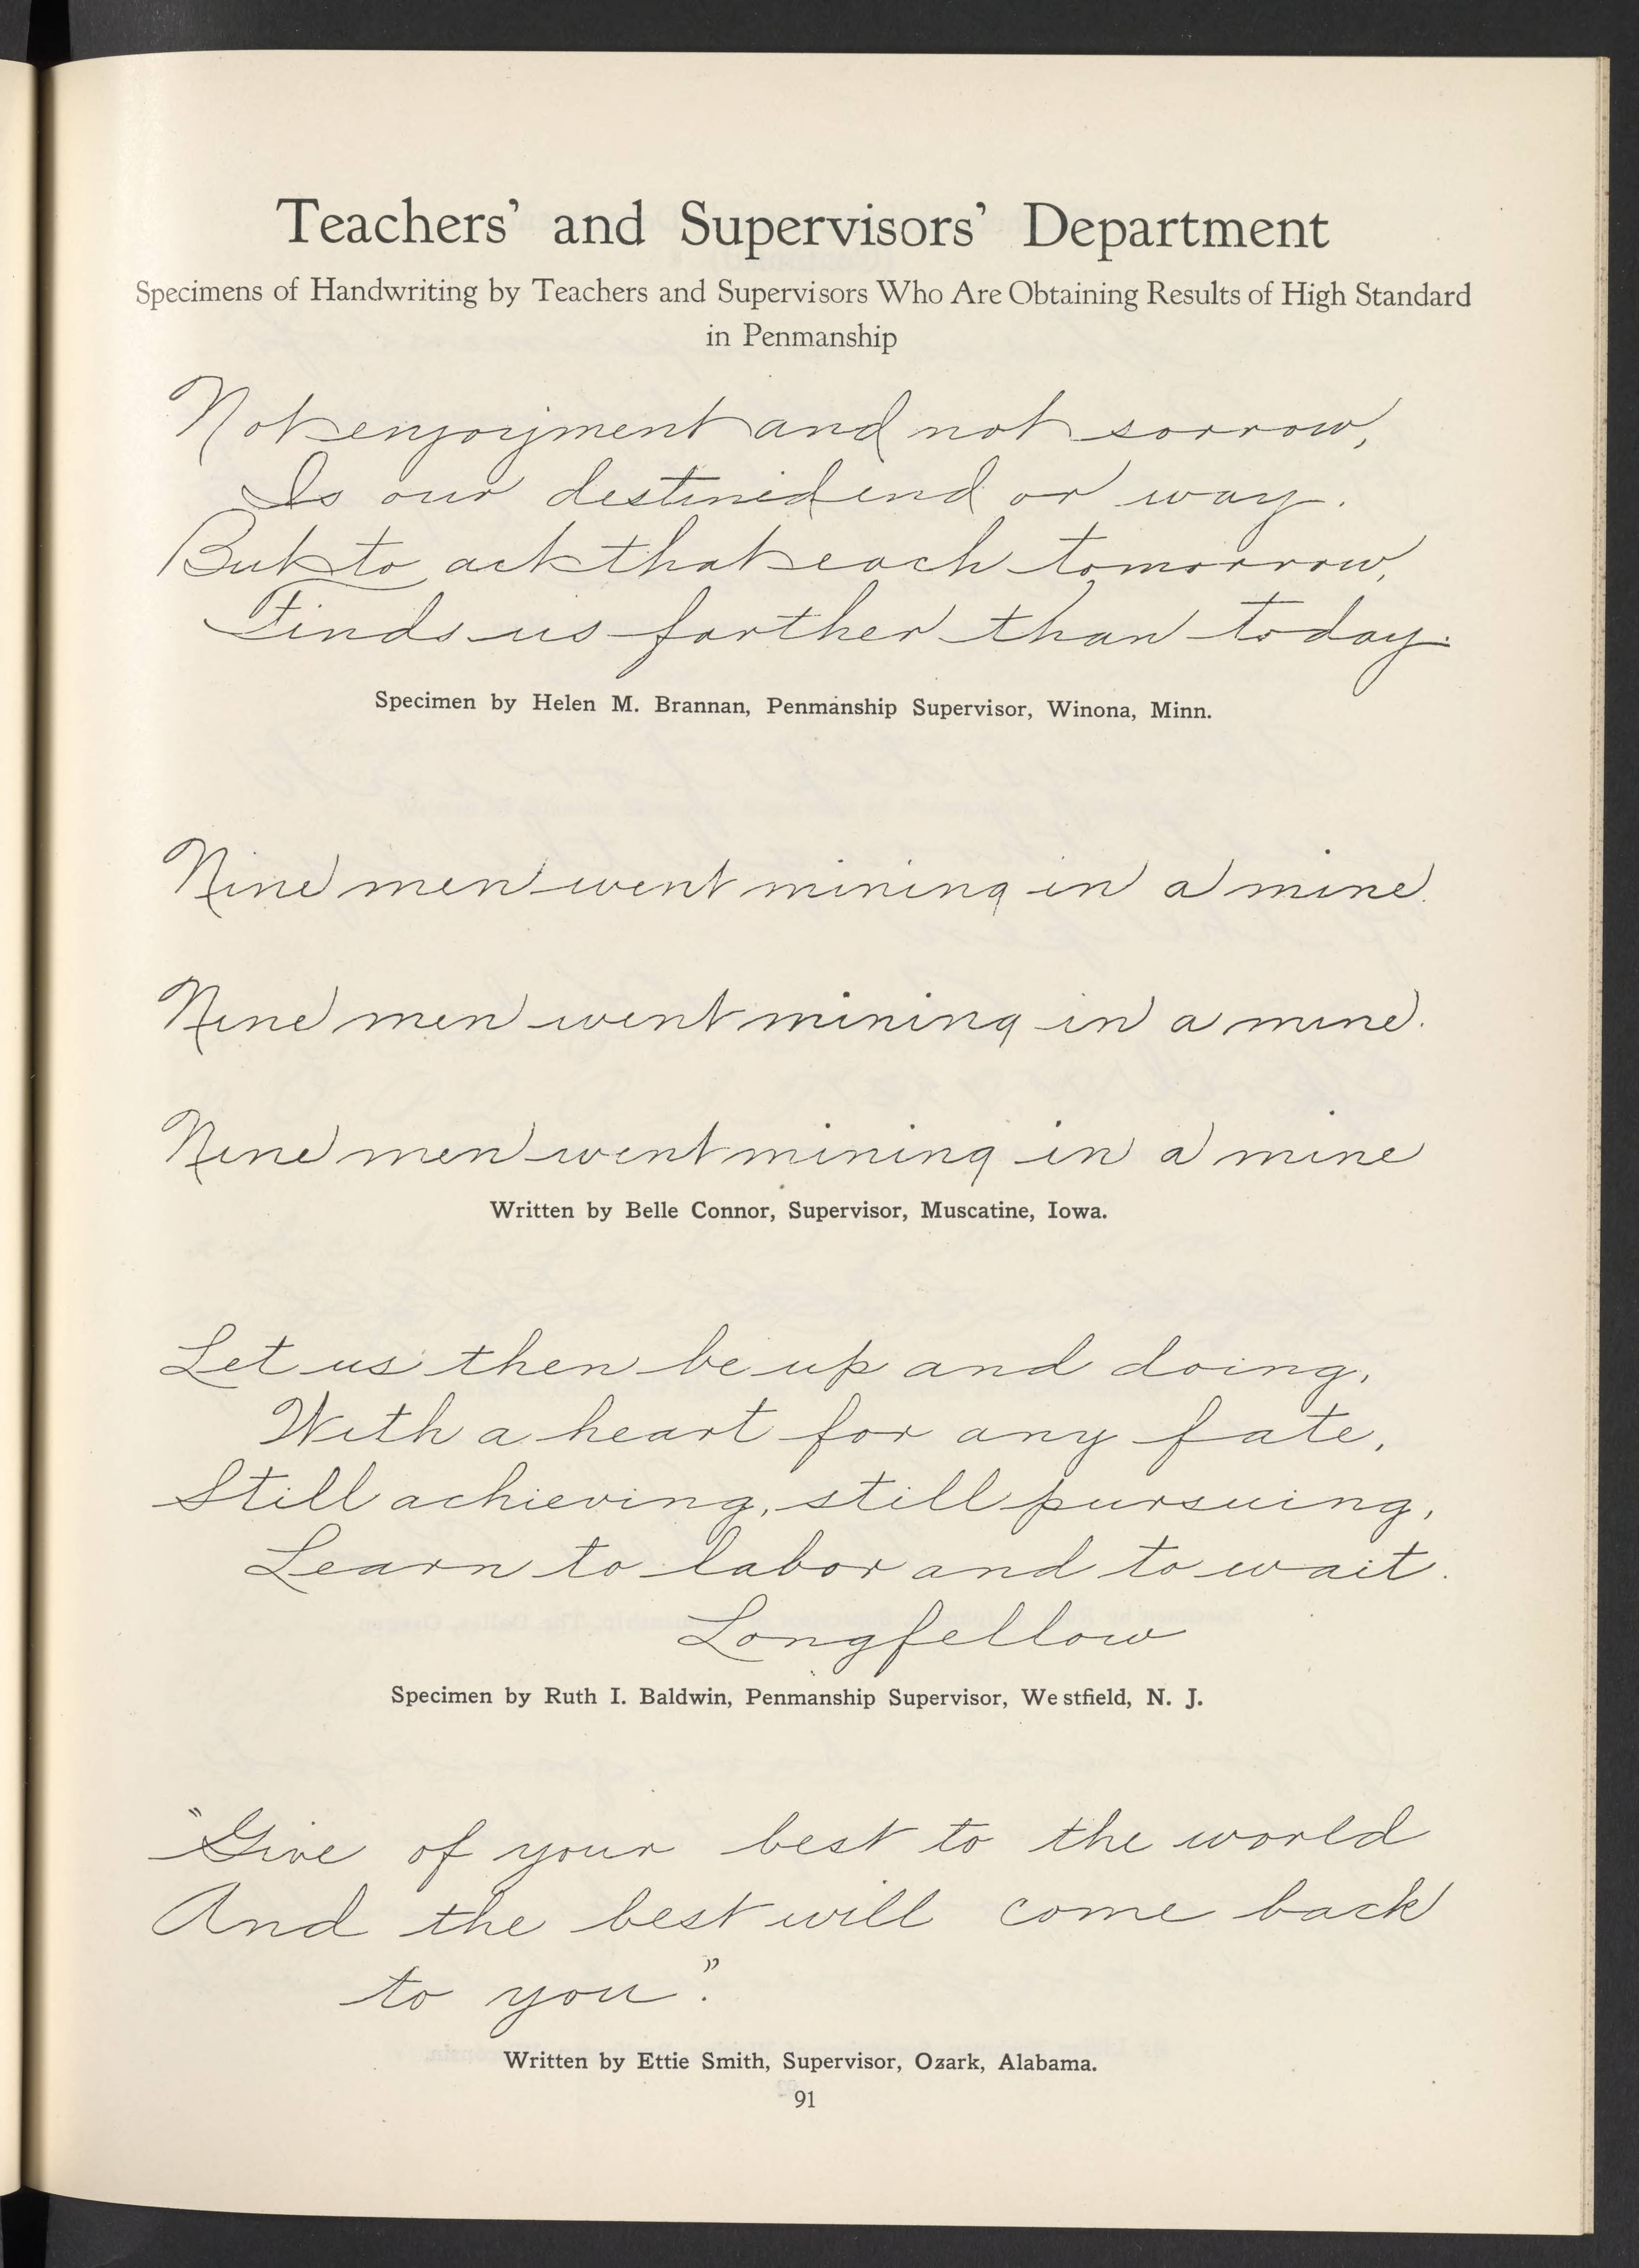 Teachers' and Supervisors' Department
Specimens of Handwriting by Teachers and Supervisors Who Are Obtaining Results of High Standard
in Penmanship
Not enjoyment and not sorrow,
Is our destined end or way.
But to act that each tomorrow,
Finds us farther than today.
Specimen by Helen M. Brannan, Penmanship Supervisor, Winona, Minn.
Nine men went mining in a mine.
Nine men went mining in a mine.
Nine men went mining in a mine
Written by Belle Connor, Supervisor, Muscatine, Iowa.
Let us then be up and doing,
With a heart for any fate,
Still achieving, still pursuing,
Learn to labor and to wait.
Longfellow
Specimen by Ruth I. Baldwin, Penmanship Supervisor, Westfield, N. J.
"Give of your best to the world
And the best will come back
to you."
Written by Ettie Smith, Supervisor, Ozark, Alabama.
91